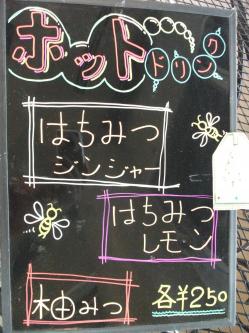 ホットドリンク
はちみつ
ジンジャー
はちみつ
レモン
柚みつ
各¥250